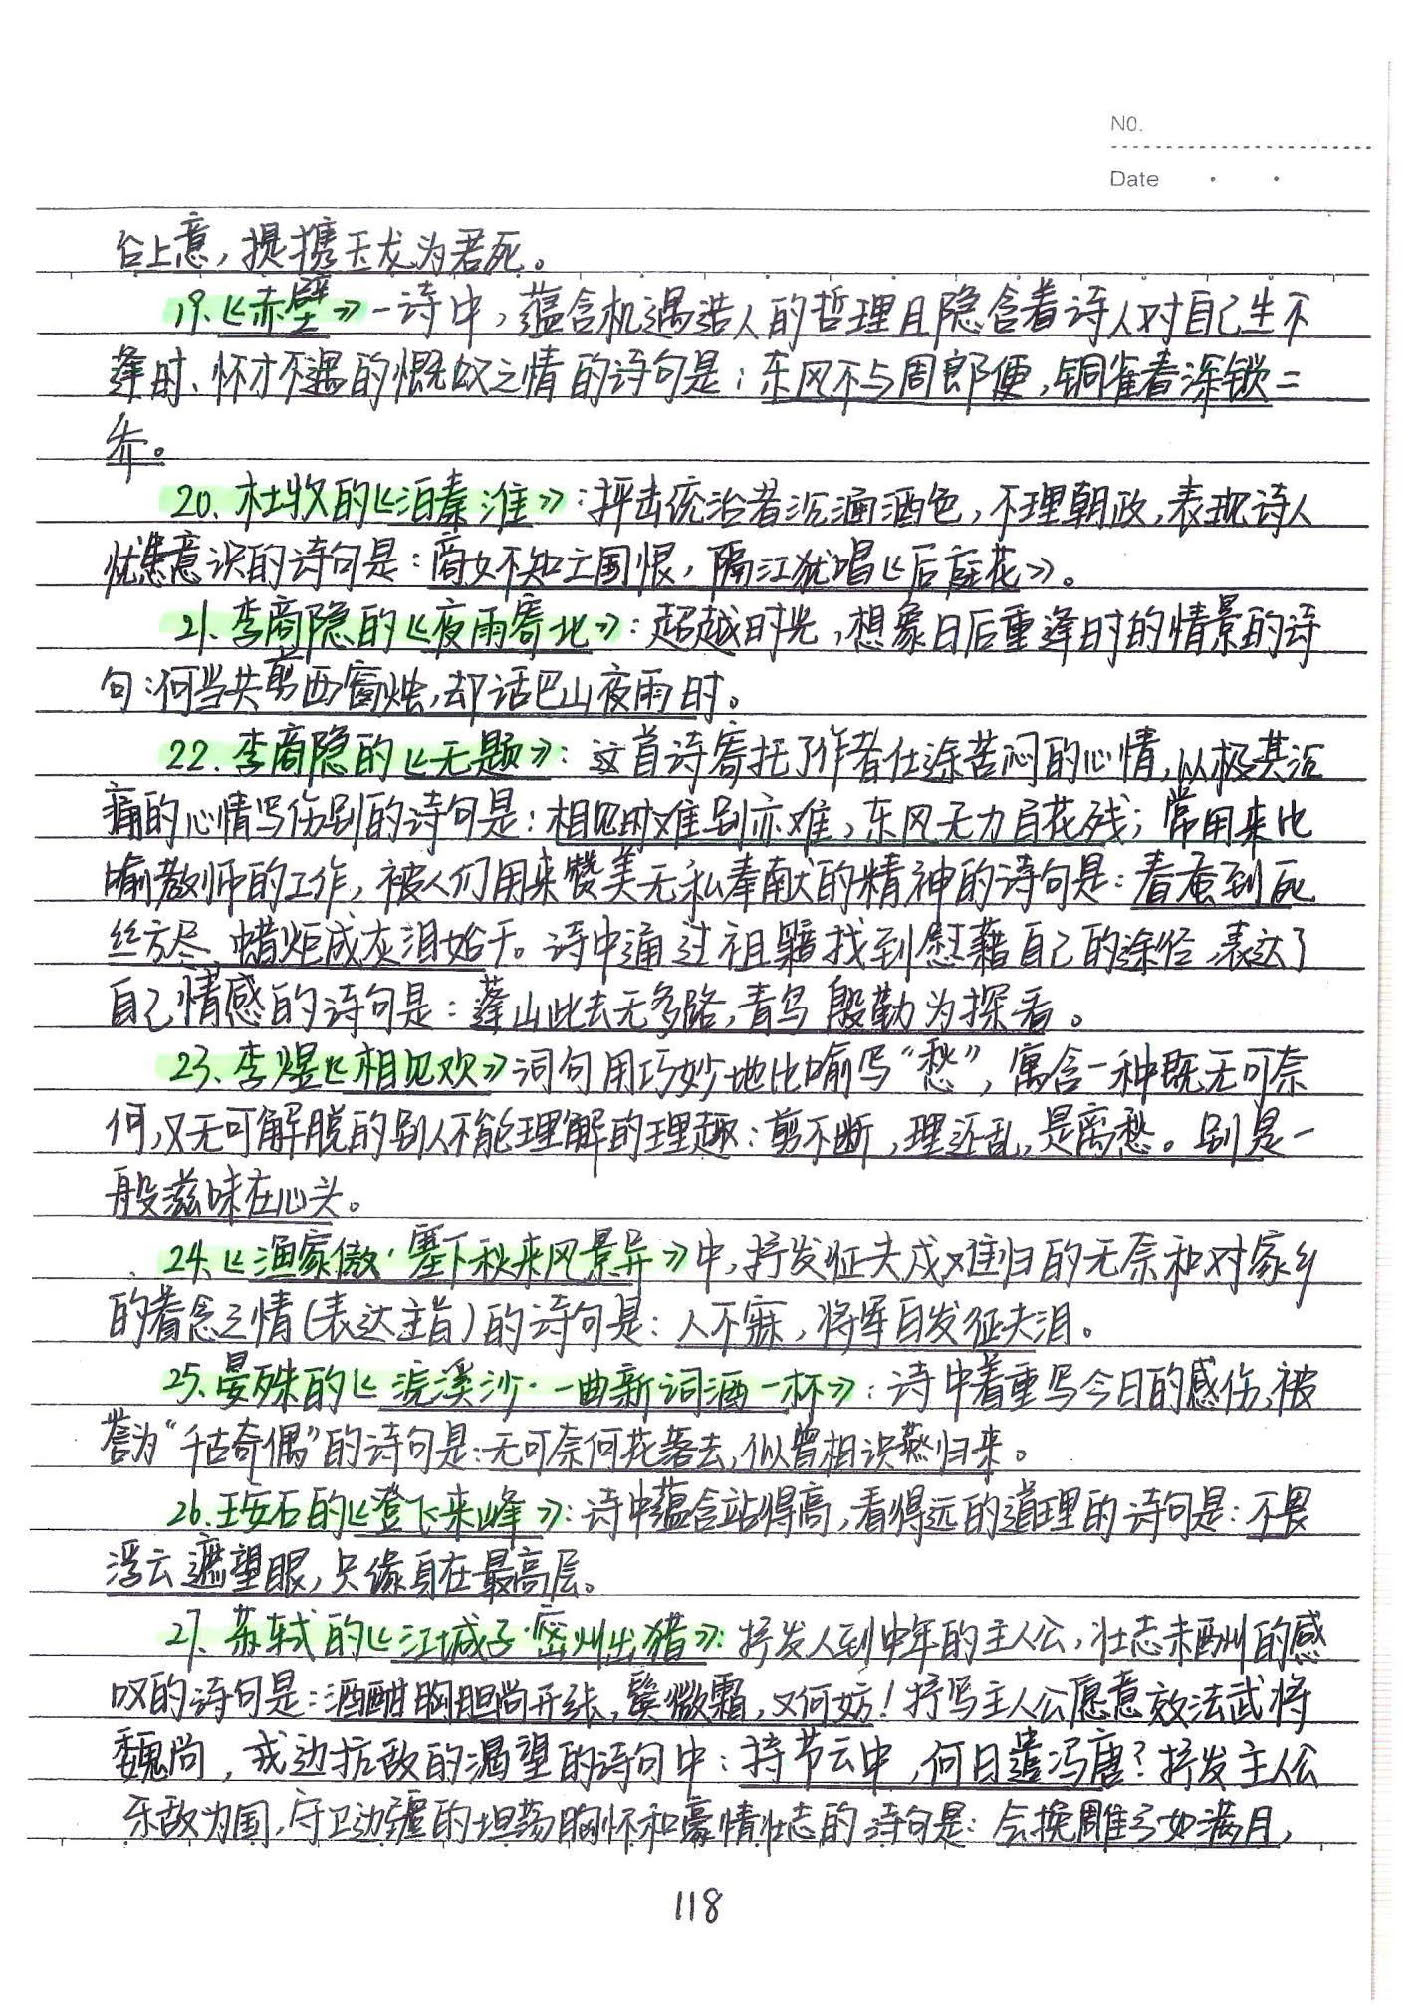 NO.
Date
台上意，提携玉龙为君死。
19.《赤壁》一诗中，蕴含机遇造人的哲理且隐含着诗人对自己生不
逢时、怀才不遇的慨叹之情的诗句是：东风不与周郎便，铜雀春深锁二
乔。
20. 杜牧的《泊秦淮》：抨击统治者沉湎酒色，不理朝政，表现诗人
忧患意识的诗句是：商女不知亡国恨，隔江犹唱《后庭花》。
21. 李商隐的《夜雨寄北》：超越时光，想象日后重逢时的情景的诗
句：何当共剪西窗烛，却话巴山夜雨时。
22. 李商隐的《无题》：这首诗寄托了作者仕途苦闷的心情，以极其沉
痛的心情写伤别的诗句是：相见时难别亦难，东风无力百花残；常用来比
喻教师的工作，被人们用来赞美无私奉献的精神的诗句是：春蚕到死
丝方尽，蜡炬成灰泪始干。诗中通过祖籍找到慰藉自己的途径，表达了
自己情感的诗句是：蓬山此去无多路，青鸟殷勤为探看。
23. 李煜《相见欢》词句用巧妙地比喻写“愁”，寓含一种既无可奈
何，又无可解脱的别人不能理解的理趣：剪不断，理还乱，是离愁。别是一
般滋味在心头。
24.《渔家傲·塞下秋来风景异》中，抒发征夫戍难归的无奈和对家乡
的眷念之情(表达主旨)的诗句是：人不寐，将军白发征夫泪。
25. 晏殊的《浣溪沙·一曲新词酒一杯》：诗中着重写今日的感伤，被
誉为“千古奇偶”的诗句是：无可奈何花落去，似曾相识燕归来。
26. 王安石的《登飞来峰》：诗中蕴含站得高，看得远的道理的诗句是：不畏
浮云遮望眼，只缘身在最高层。
27. 苏轼的《江城子·密州出猎》：抒发人到中年的主人公，壮志未酬的感
叹的诗句是：酒酣胸胆尚开张，鬓微霜，又何妨！抒写主人公愿意效法武将
魏尚，戍边抗敌的渴望的诗句中：持节云中，何日遣冯唐？抒发主人公
杀敌为国，守卫边疆的坦荡胸怀和豪情壮志的诗句是：会挽雕弓如满月，
118